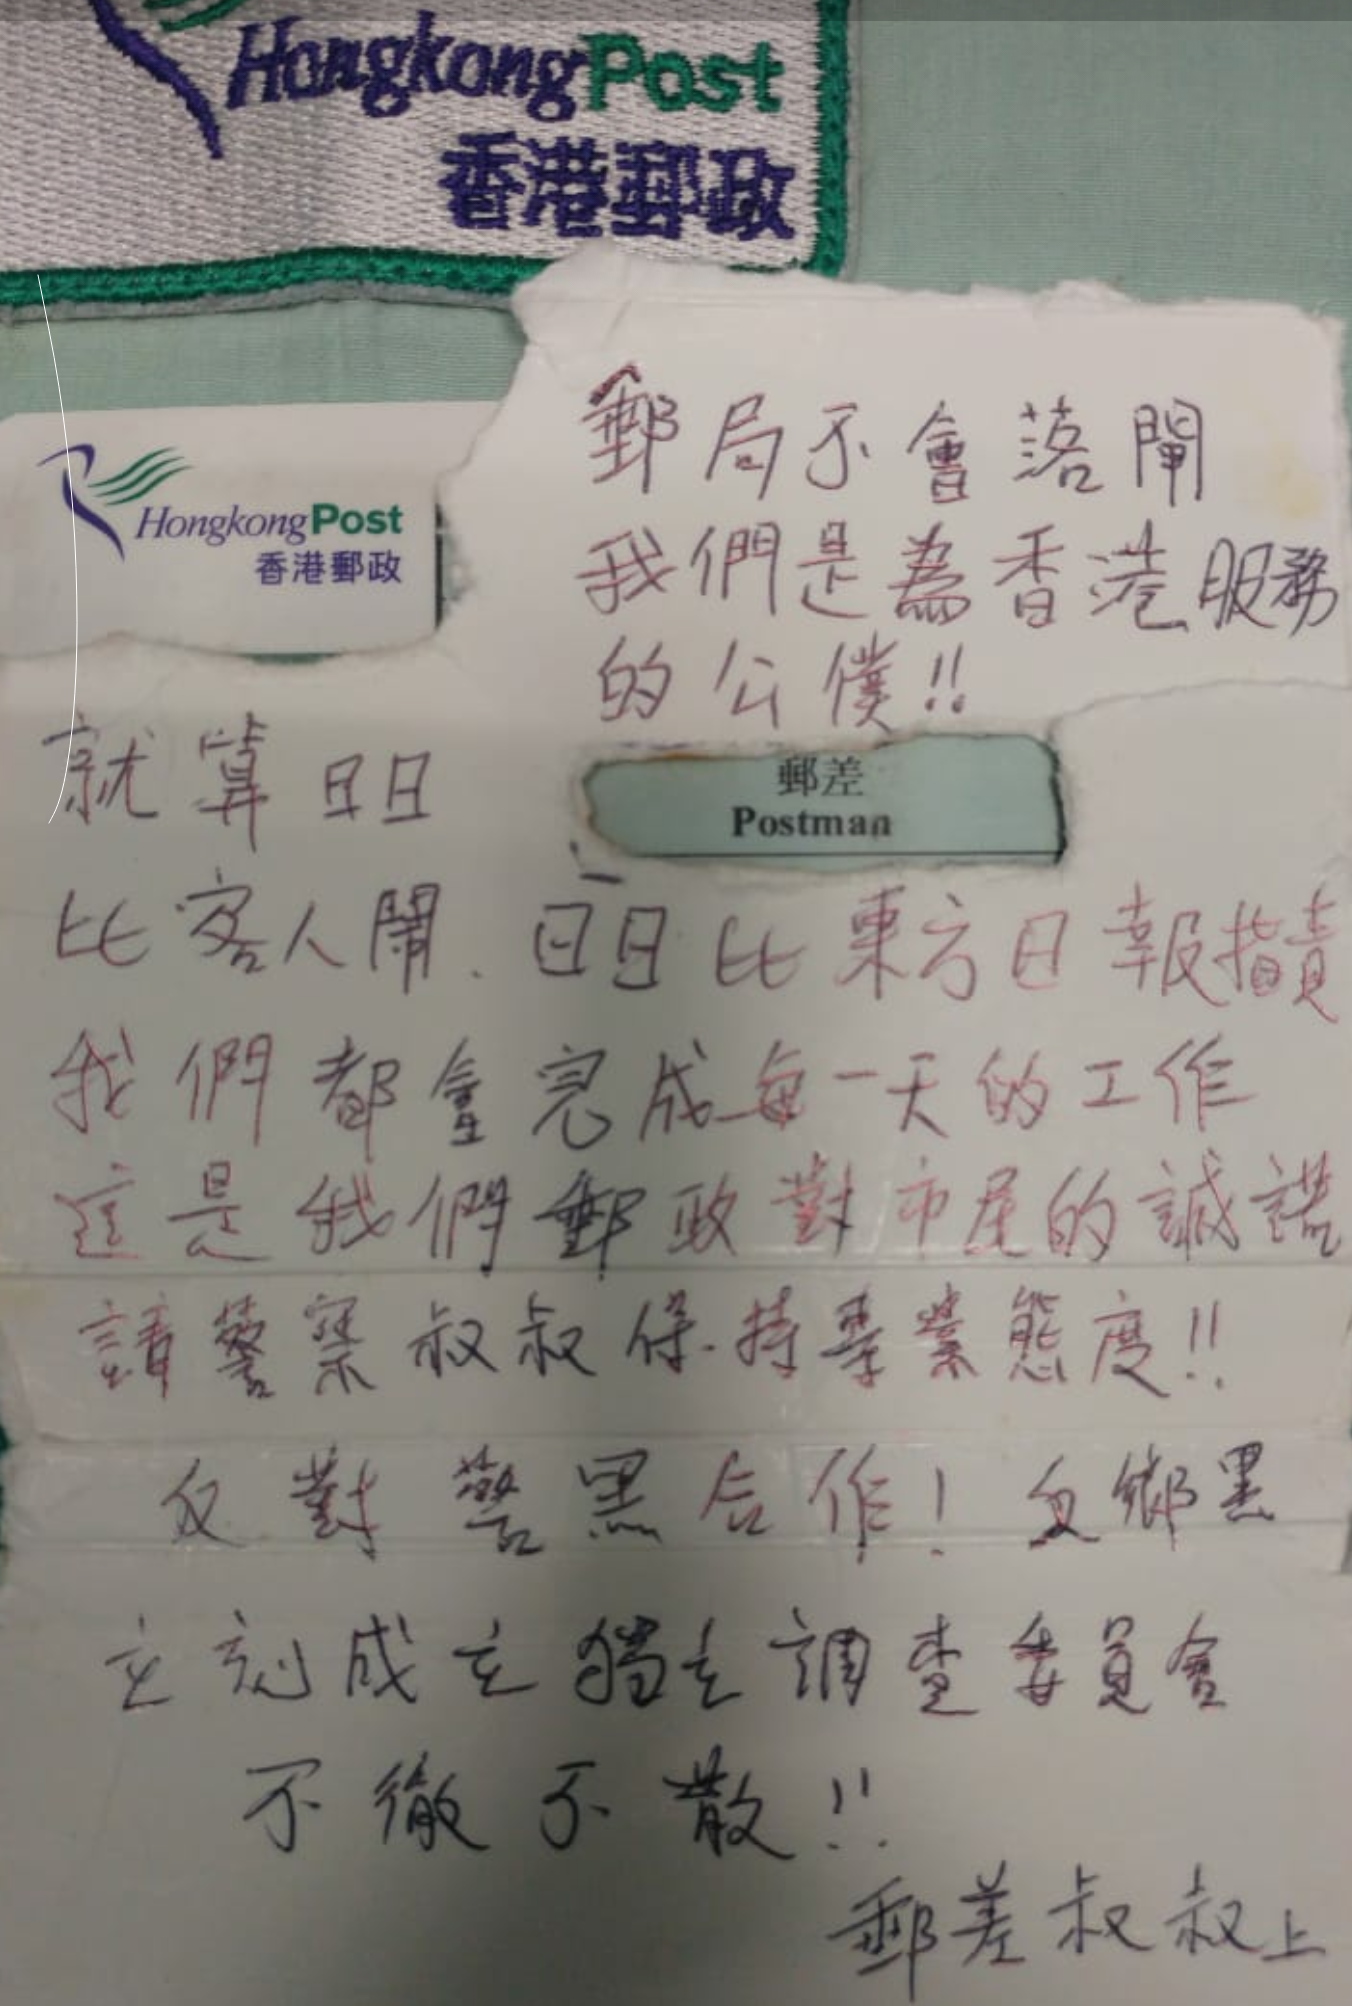 HongkongPost
香港郵政
HongkongPost
香港郵政
郵局不會落閘
我們是為香港服務
的公僕!!
郵差
Postman
就算日日
比客人鬧、日日比東方日報指責
我們都會完成每一天的工作
這是我們郵政對市民的諴諾
請警察叔叔保持專業態度!!
反對警黑合作! 反鄉黑
立刻成立獨立調查委員會
不徹不散!!
郵差叔叔上